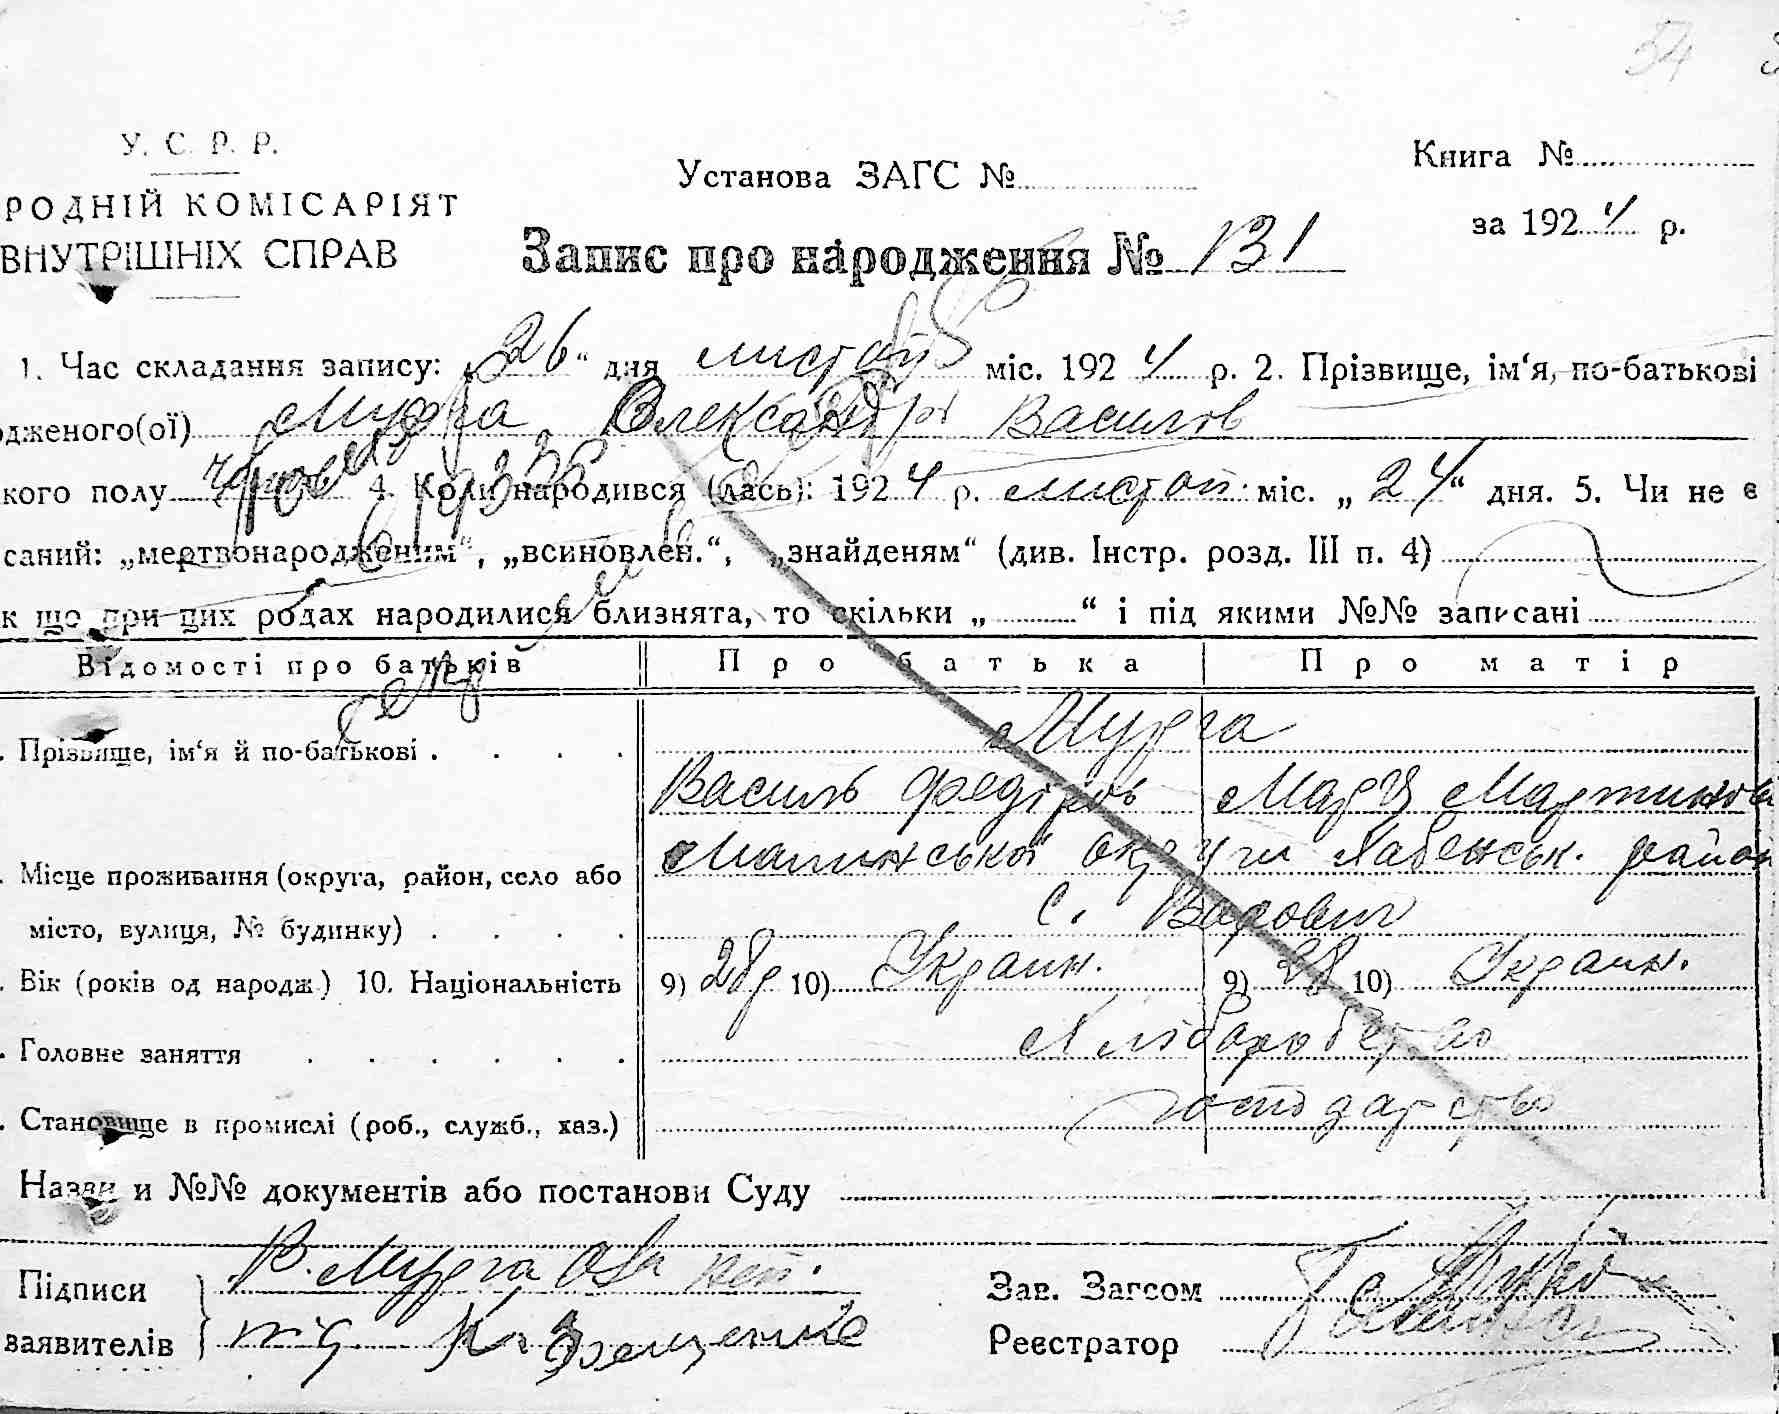 54
У. С. Р. Р.
РОДНІЙ КОМІСАРІЯТ
ВНУТРІШНІХ СПРАВ
Установа ЗАГС №
Книга №
за 1924 р.
Запис про народження № 131
1. Час складання запису: „26“ дня листоп міс. 1924 р. 2. Прізвище, ім‘я, по-батькові
дженого(ої) Мурга Олександр Василів
кого полу 4. Коли народився (лась): 1924 р. листоп. міс. „24“ дня. 5. Чи не є
саний: „мертвонародженим“, „всиновлен.“, „знайденям“ (див. Інстр. розд. III п. 4)
к що при цих родах народилися близнята, то скільки „ “ і під якими №№ записані
Відомості про батьків Про батька Про матір
. Прізвище, ім‘я й по-батькові . . . . Мурга
Василь Федірів Марія Мартинова
. Місце проживання (округа, район, село або Малинської округи Хабенськ. район
місто, вулиця, № будинку) . . . . с. Варовичі
. Вік (років од народж.) 10. Національність 9) 28р 10) Украин. 9) 28 10) Украин.
. Головне заняття . . . . . . Хлібороб
. Становище в промислі (роб., служб., хаз.) господарство
Назви и №№ документів або постанови Суду
Підписи В. Мурга
заявителів
Зав. Загсом
Реєстратор